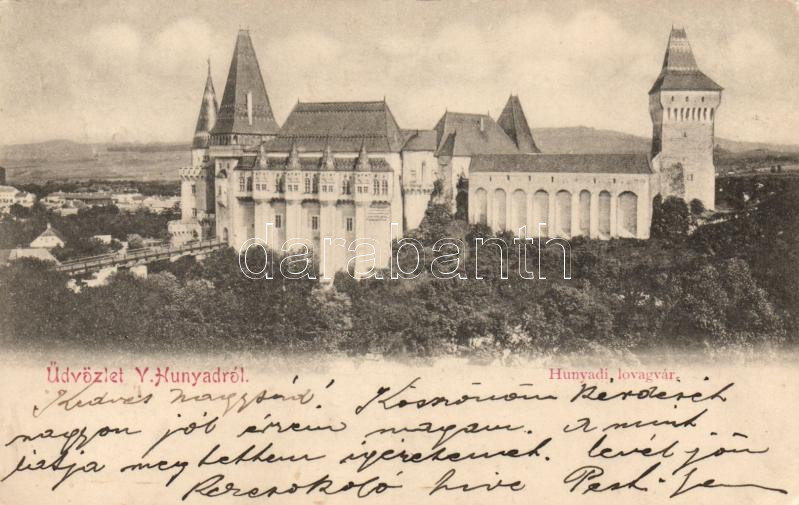 darabanth
Üdvözlet V. Hunyadról.
Hunyadi lovagvár.
Kedves Nagysád! Köszönöm kérdését
nagyon jól érzem magam. A mint
látja megtettem igéretemet. levél jön
híve